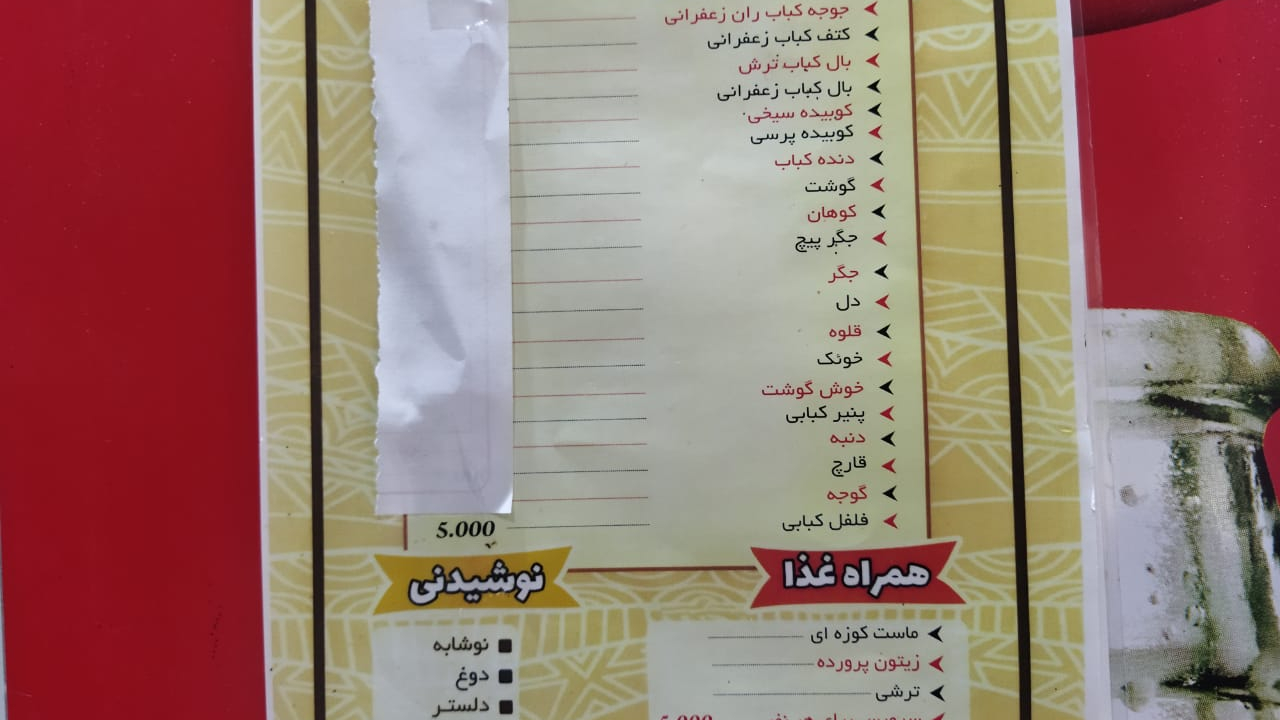 جوجه کباب ران زعفرانی
کتف کباب زعفرانی
بال کباب ترش
بال کباب زعفرانی
کوبیده سیخی
کوبیده پرسی
دنده کباب
گوشت
کوهان
جگر پیچ
جگر
دل
قلوه
خوئک
خوش گوشت
پنیر کبابی
دنبه
قارچ
گوجه
فلفل کبابی 5.000
همراه غذا
ماست کوزه ای
زیتون پرورده
ترشی
5.000
نوشیدنی
نوشابه
دوغ
دلستر